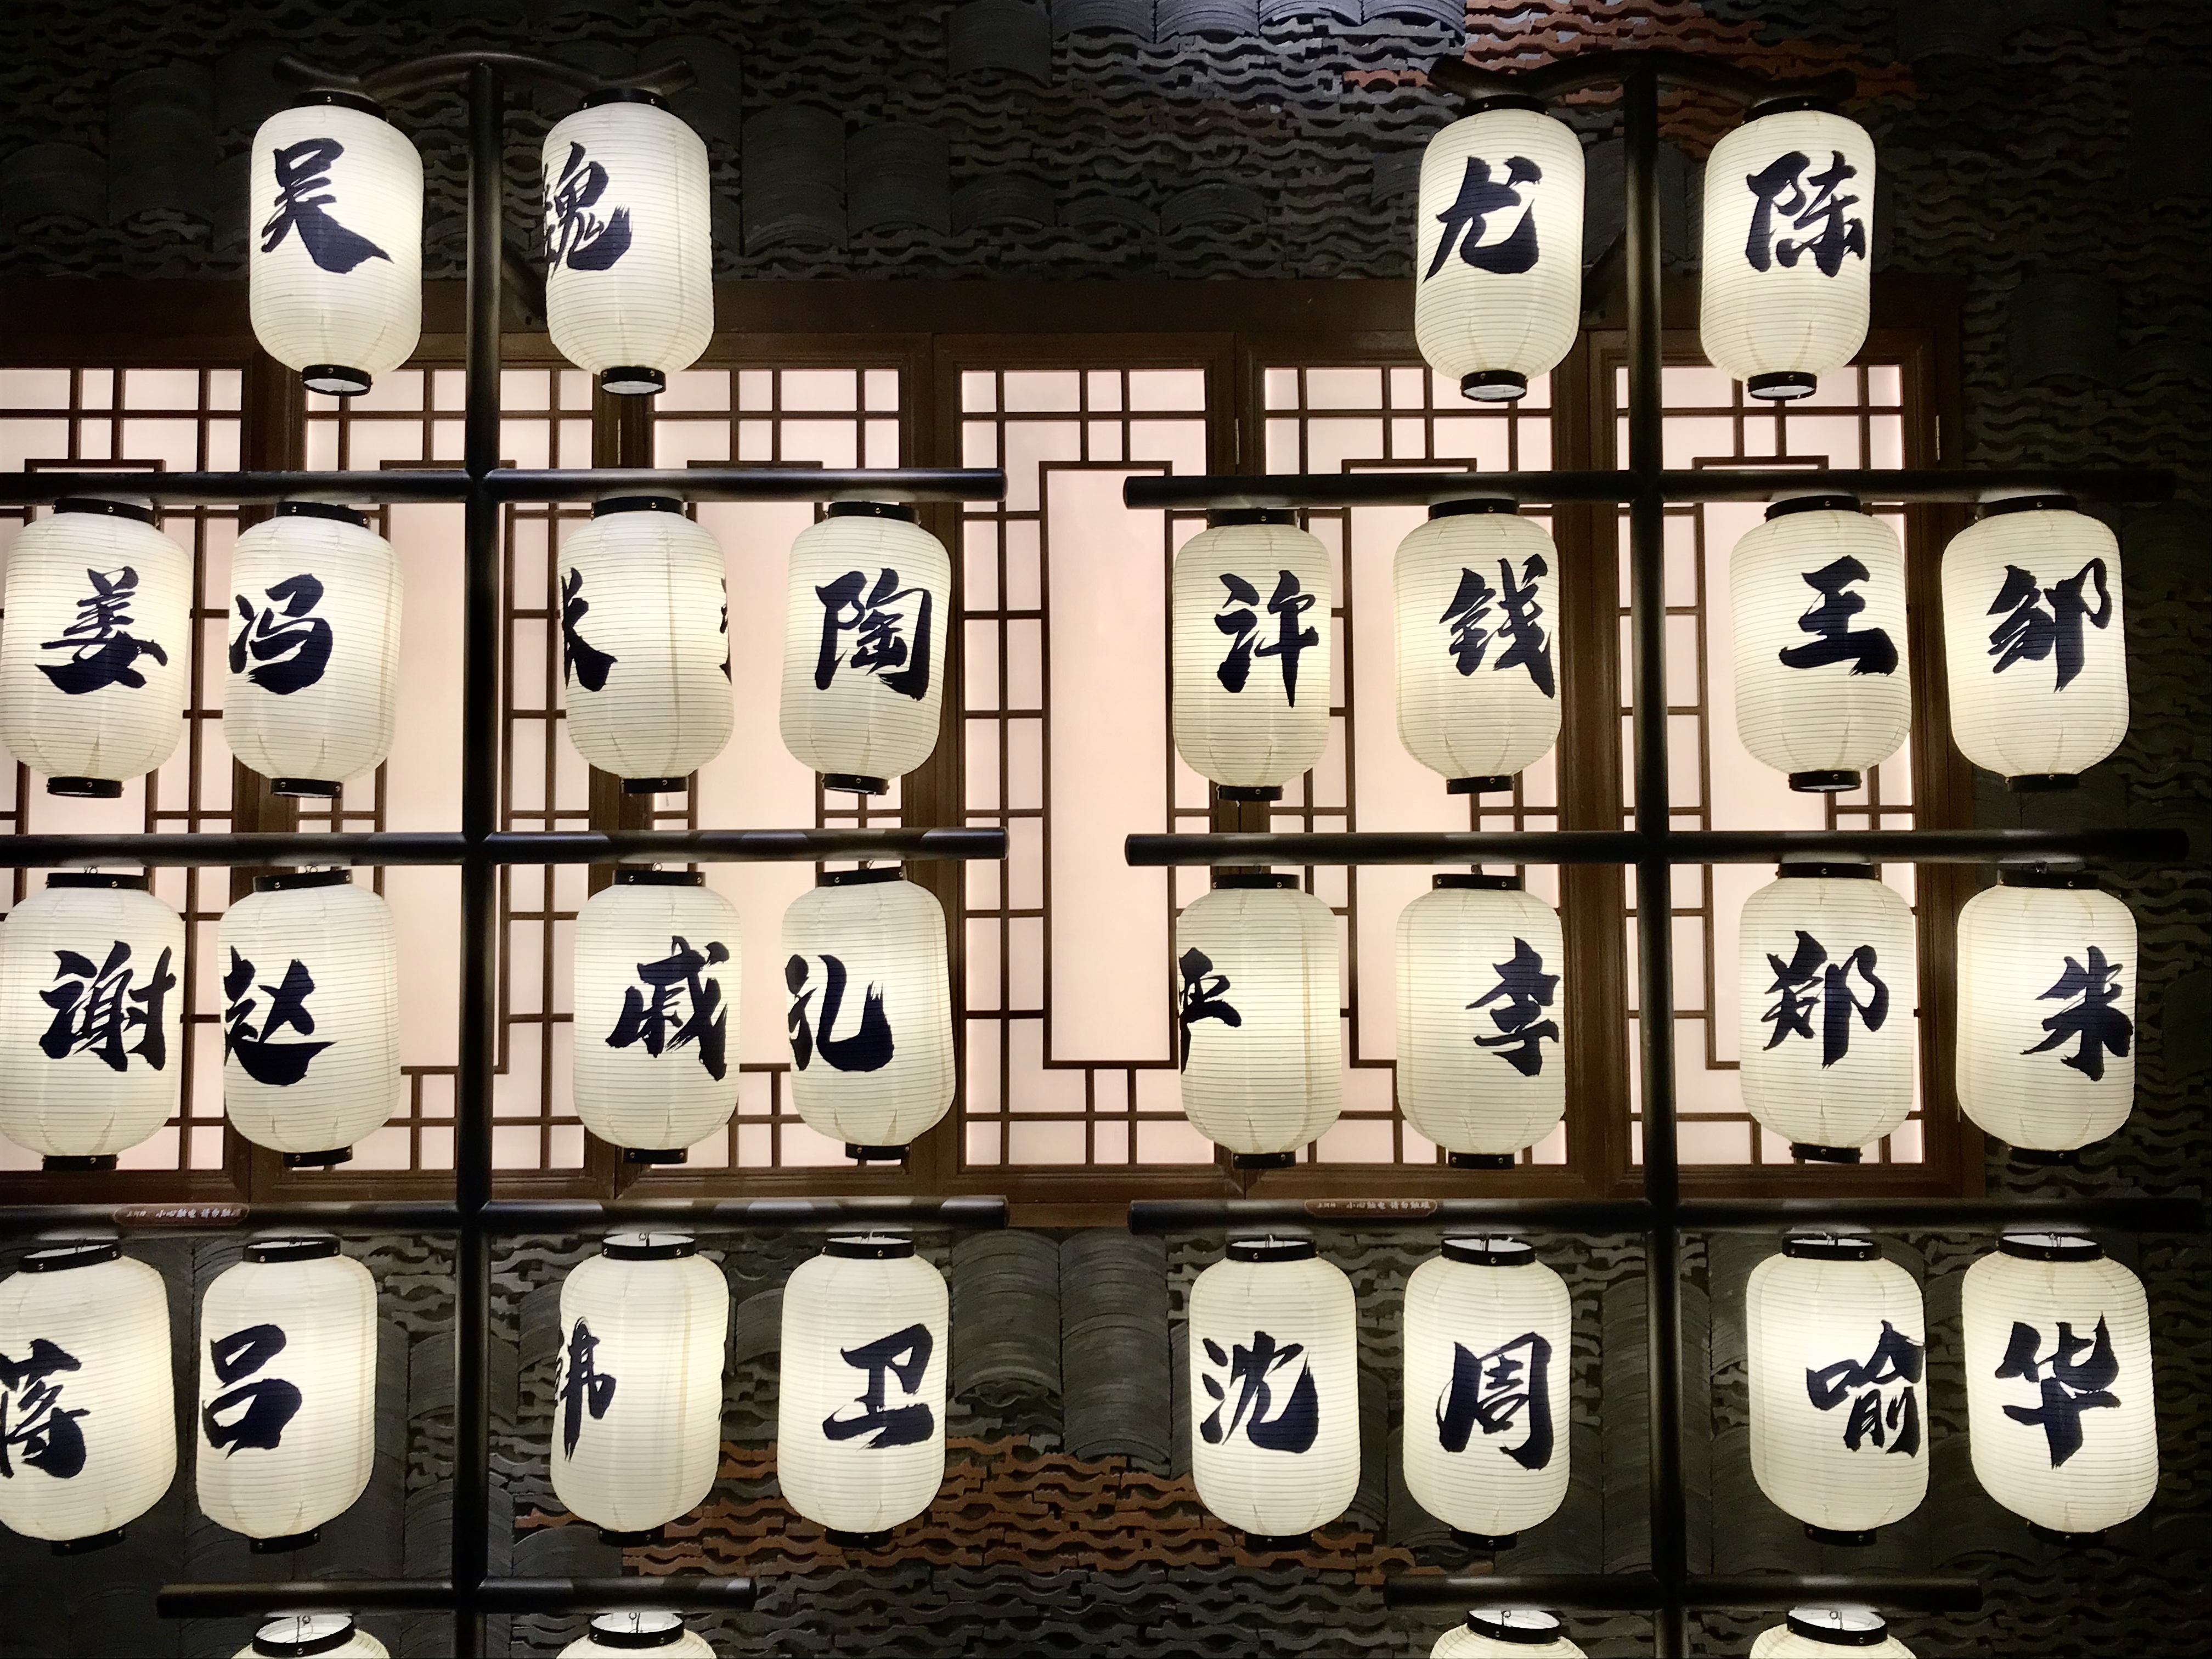 吴 魏 尤 陈
姜 冯 张 陶 许 钱 王 邹
谢 赵 戚 孔 严 李 郑 朱
小心触电 请勿触碰 小心触电 请勿触碰
蒋 吕 韩 卫 沈 周 喻 华